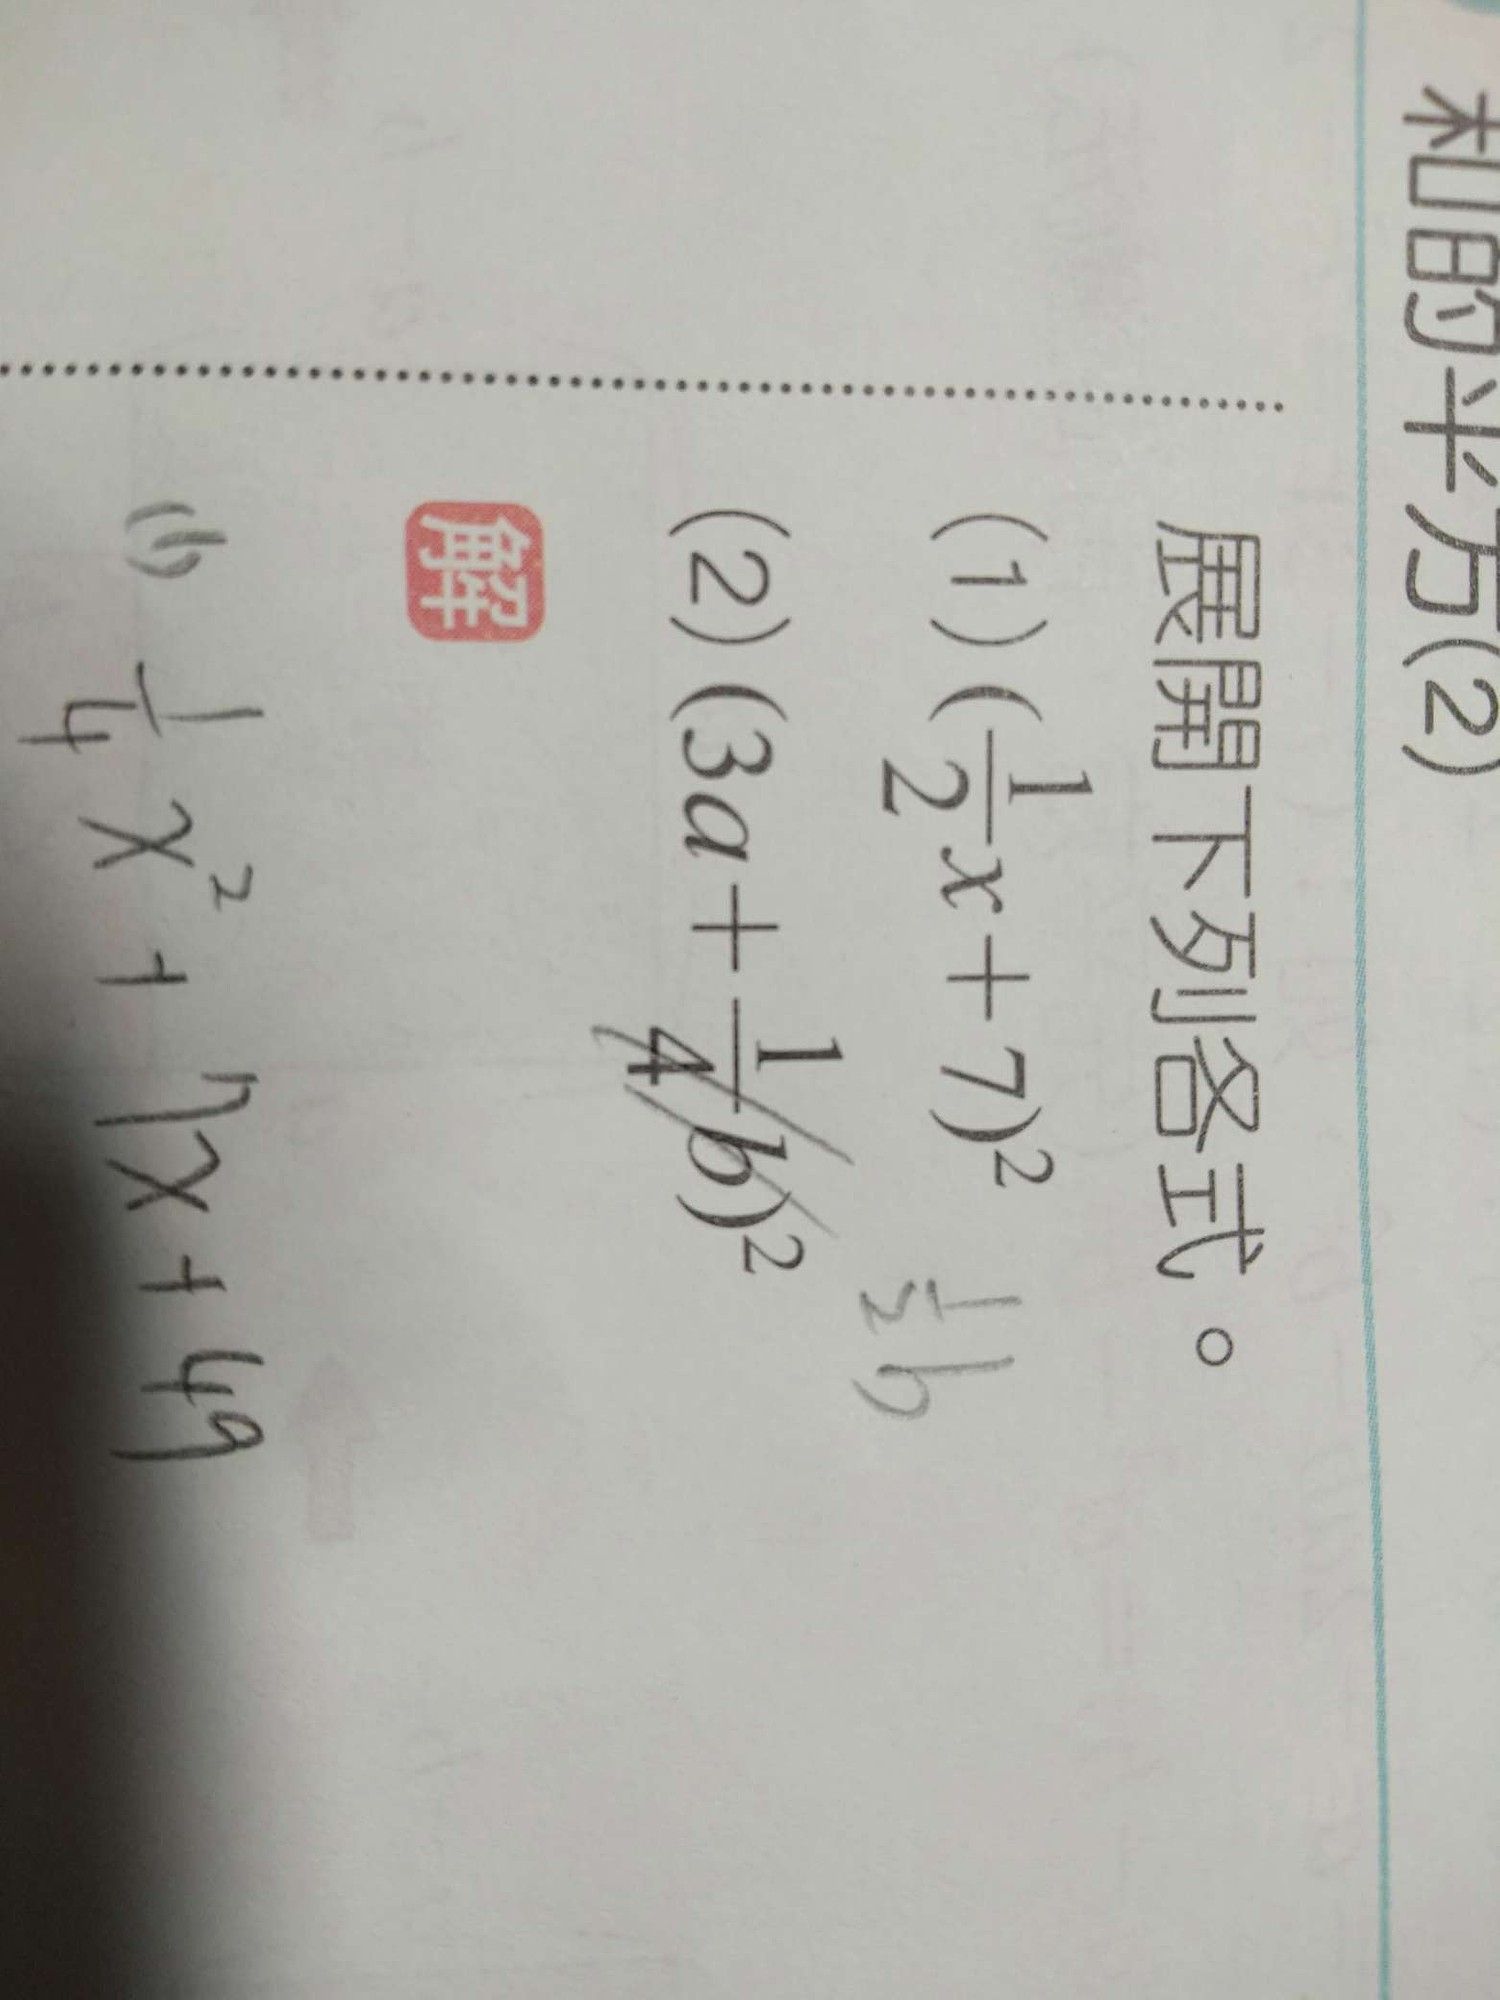 和的平方(2)
展開下列各式。
(1) (1/2 x + 7)²
(2) (3a + 1/4 b)²
1/2 b
解
(1) 1/4 x² + 7x + 49